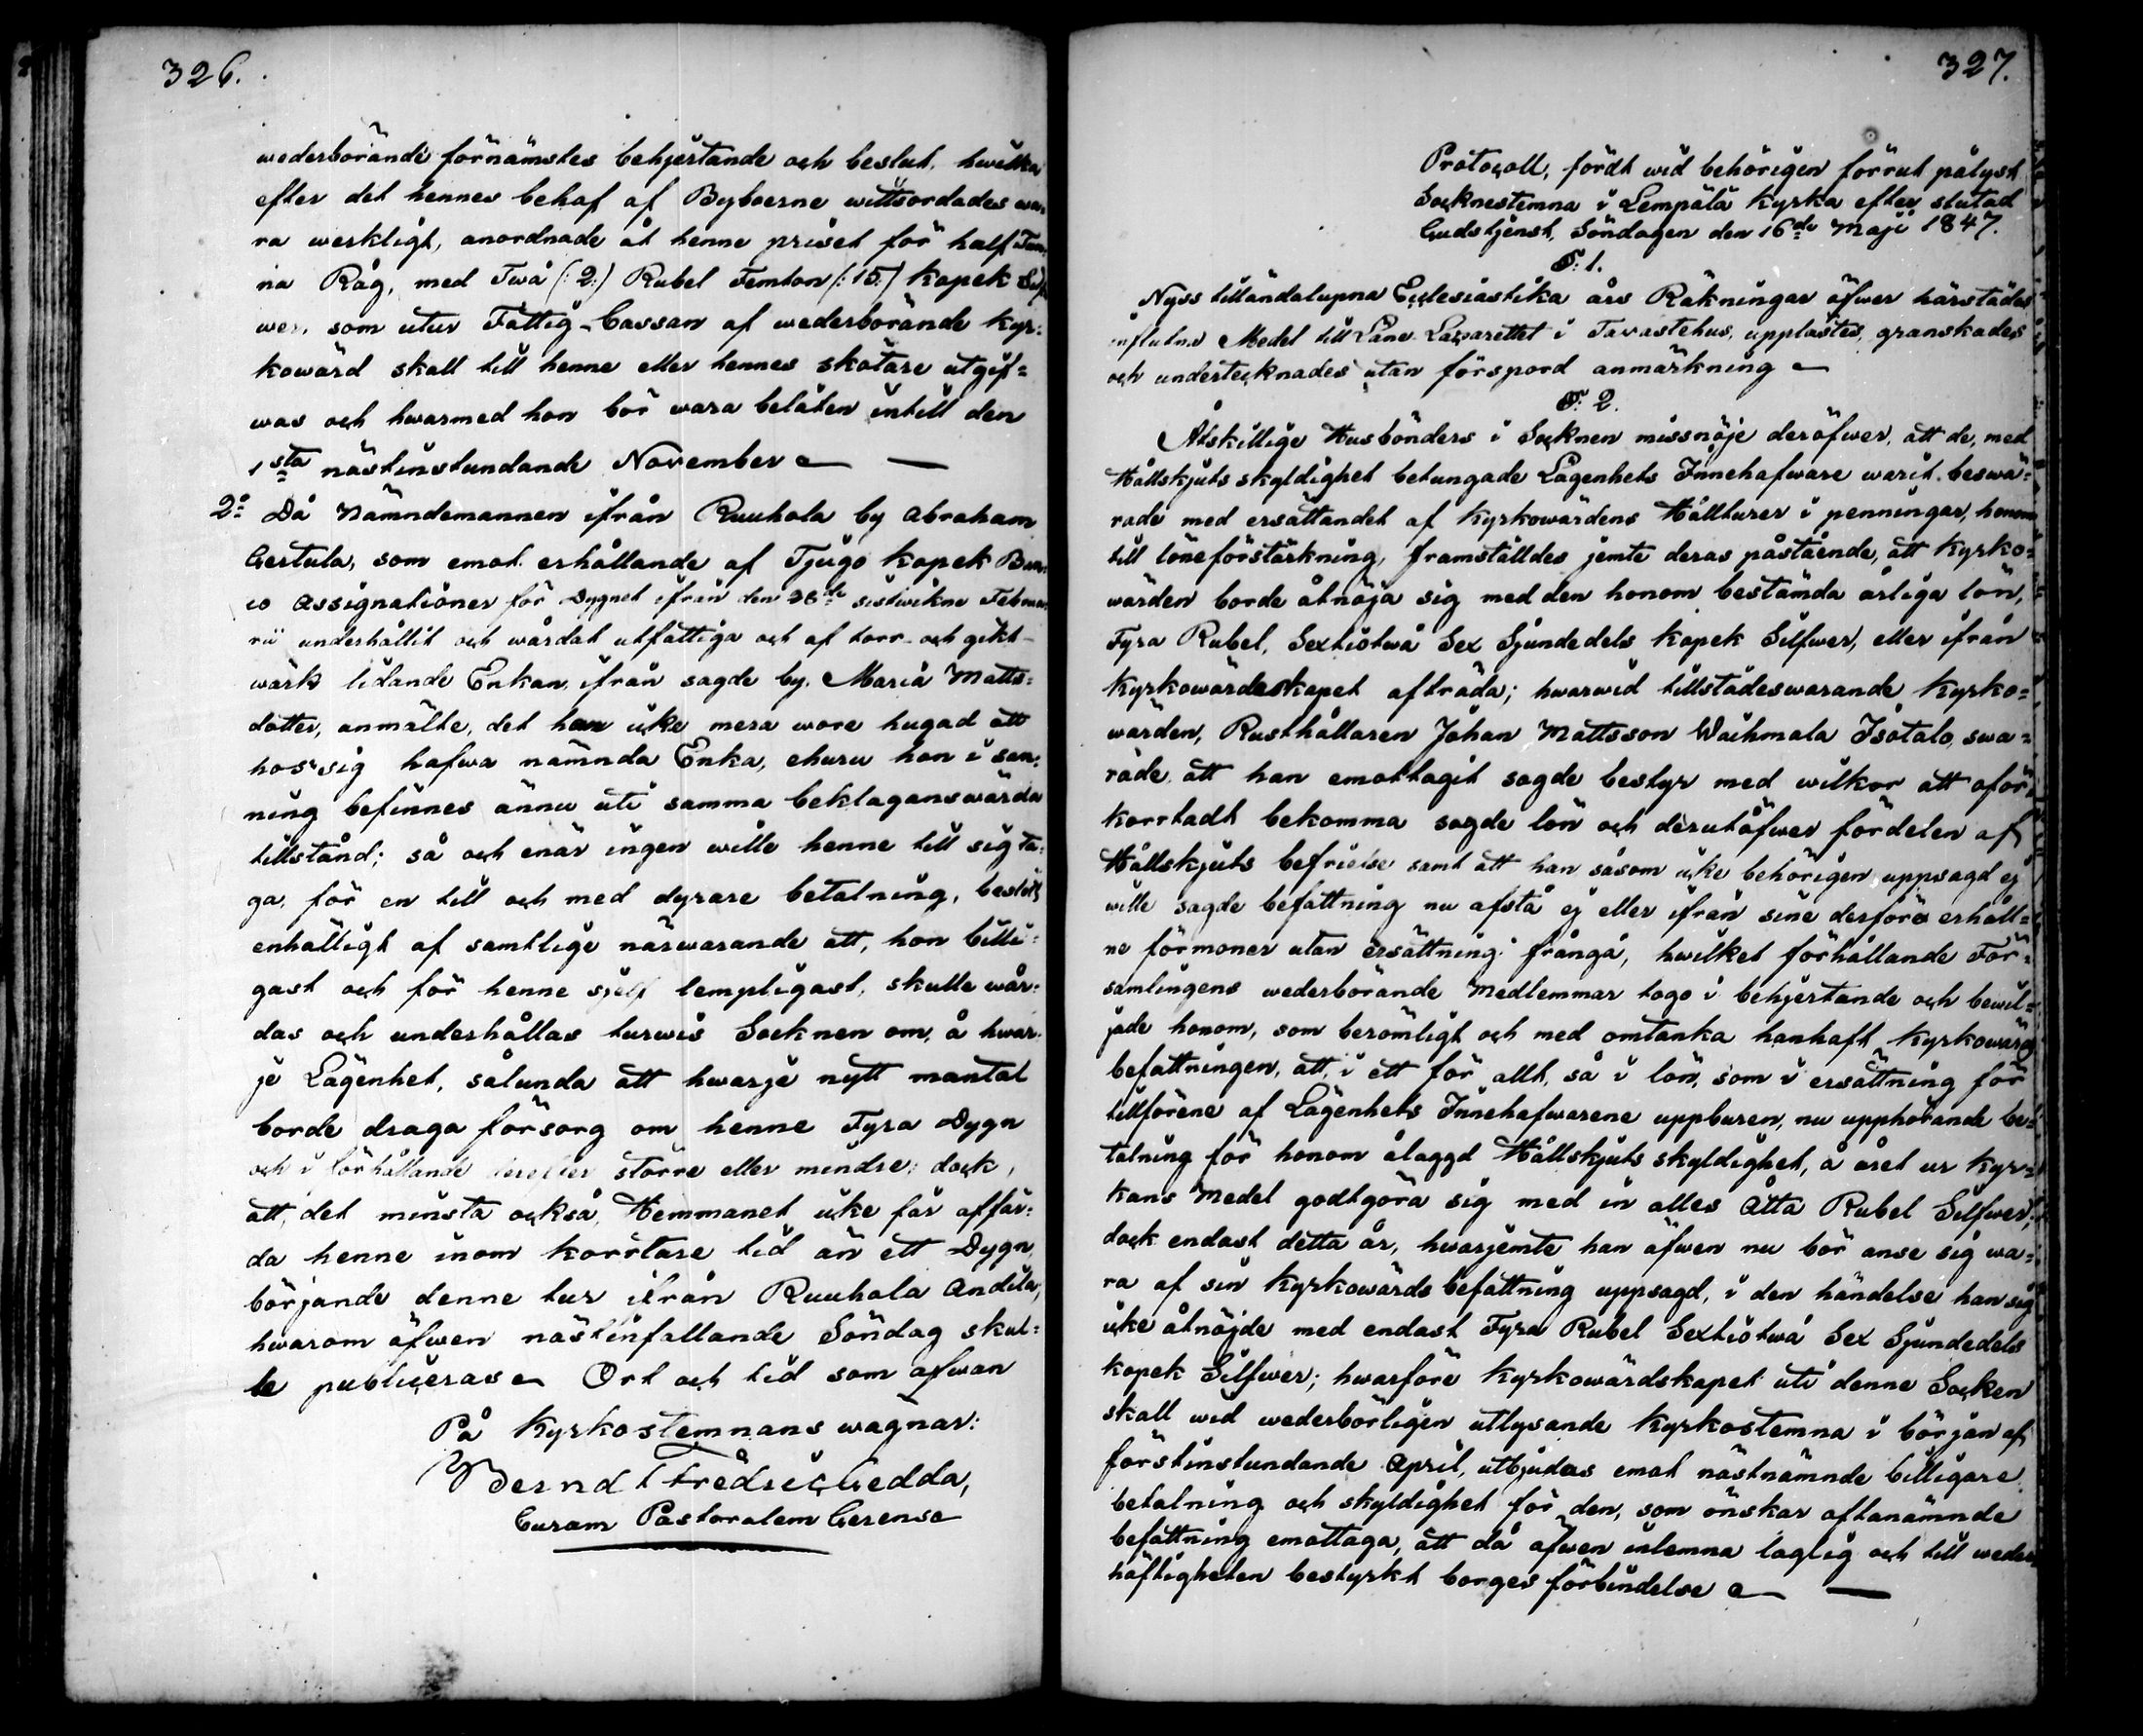 326.
wederbörande förnämstes behjertande och beslut, hwilka
efter det hennes behof af Byboerne wittsordades wa-
ra werkligt, anordnade åt henne priset för half Tun-
na Råg, med Twå (:2:) Rubel Femton (:15:) kopek Sil-
wer, som utur Fattig-Cassan af wederbörande Kyr-
kowärd skall till henne eller hennes skötare utgif-
was och hwarmed hon bör wara belåten intill den
1sta nästinstundande November
2o Då Nämndemannen ifrån Ruuhola by Abraham
Gertula, som emot erhållande af Tjugo kopek Ban-
co Assignationer för Dygnet ifrån den 28de sistwikne Februa-
rii underhållit och wårdat utfattiga och af torr- och gikt-
wärk lidande Enkan, ifrån sagde by, Maria Matts-
dotter, anmälte, det han icke mera wore hugad att
hos sig hafwa nämnda Enka, ehuru hon i san-
ning befinnes ännu uti samma beklaganswärda
tillstånd; så och enär ingen wille henne till sig ta-
ga, för en till och med dyrare betalning, beslöts
enhälligt af samtlige närwarande att, hon billi-
gast och för henne sjelf lempligast, skulle wår-
das och underhållas turwis Socknen om, å hwar-
je Lägenhet, sålunda att hwarje nytt mantal
borde draga försorg om henne Fyra Dygn
och i förhållande derefter större eller mindre; dock,
att, det minsta också, Hemmanet icke får affär-
da henne inom korrtare tid än ett Dygn,
börjande denne tur ifrån Ruuhola Andila,
hwarom äfwen nästinfallande Söndag skul-
le publiceras. Ort och tid som ofwan
På Kyrkostemnans wägnar:
Bernd Fredric Gedda,
Curam Pastoralem Gerens
327.
Protocoll, fördt wid behörigen förrut pålyst
Socknestemna i Lempälä Kyrka efter slutad
Gudstjenst, Söndagen den 16de Maji 1847.
§: 1.
Nyss tilländalupna Ecclesiastika års Räkningar öfwer härstädes
influtna Medel till Läne Lazarettet i Tavastehus, upplästes, granskades
och undertecknades utan förspord anmärkning
§: 2.
Åtskillige Husbönders i Socknen missnöje deröfwer, att de, med
Hållskjuts skyldighet betungade Lägenhets Innehafware warit beswä-
rade med ersättandet af Kyrkowärdens Hållturer i penningar, honom
till löneförstärkning, framställdes jemte deras påstående, att Kyrko-
wärden borde åtnöja sig med den honom bestämda årliga lön,
Fyra Rubel, Sextiotwå Sex Sjundedels kopek Silfwer, eller ifrån
Kyrkowärdeskapet afträda; hwarwid tillstädeswarande Kyrko-
wärden, Rusthållaren Johan Mattsson Waihmala Isotalo, swa-
rade, att han emottagit sagde bestyr med wilkor att oför-
korrtadt bekomma sagde lön och derutöfwer fördelen af
Hållskjuts befrielse samt att han såsom icke behörigen uppsagd ej
wille sagde befattning nu afstå ej eller ifrån sine derföre erhåll-
ne förmoner utan ersättning frångå, hwilket förhållande För-
samlingens wederbörande Medlemmar togo i behjertande och bewil-
jade honom, som berömligt och med omtanka hanhaft Kyrkowärds
befattningen, att, i ett för allt, så i lön, som i ersättning för
tillförene af Lägenhets Innehafwarene uppburen, nu upphörande be-
talning för honom ålaggd Hållskjuts skyldighet, å året ur Kyr-
kans Medel godtgöra sig med in alles Åtta Rubel Silfwer,
dock endast detta år, hwarjemte han äfwen nu bör anse sig wa-
ra af sin Kyrkowärds befattning uppsagd, i den händelse han sig
icke åtnöjde med endast Fyra Rubel Sextiotwå Sex Sjundedels
kopek Silfwer; hwarföre Kyrkowärdskapet uti denne Socken
skall wid wederbörligen utlysande Kyrkostemna i början af
förstinstundande April, utbjudas emot nästnämnde billigare
betalning och skyldighet för den, som önskar oftanämnde
befattning emottaga, att då äfwen inlemna laglig och till weder-
häftigheten bestyrkt borgesförbindelse